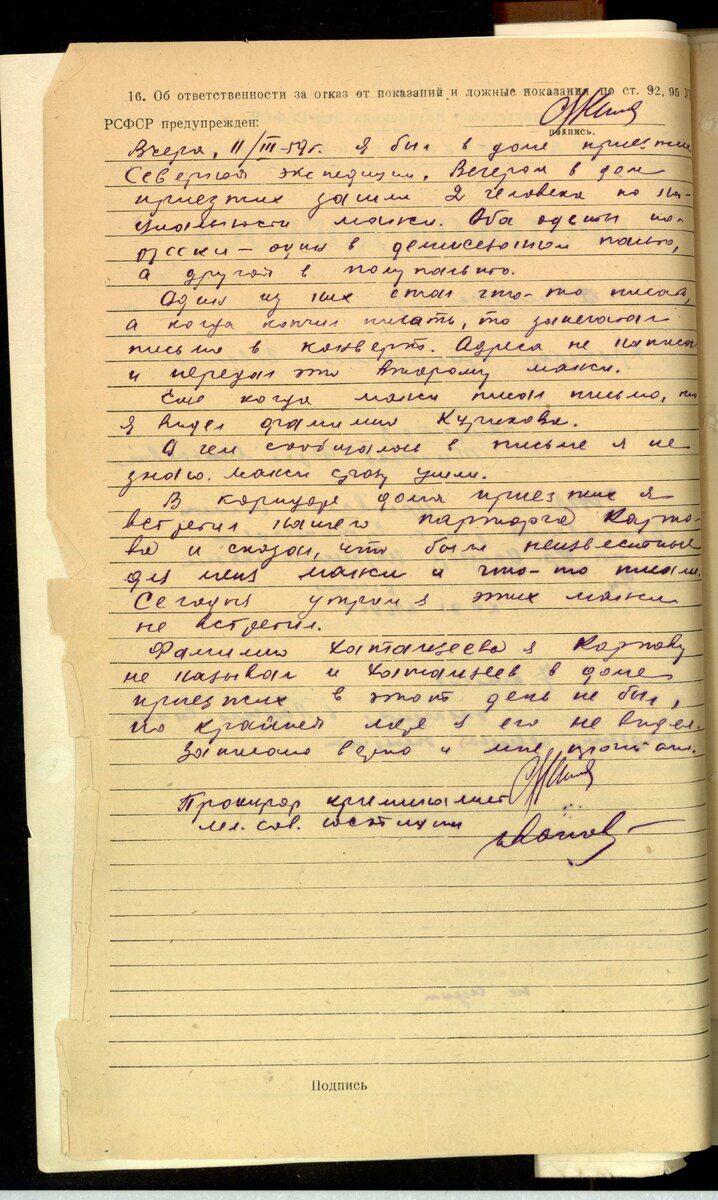 16. Об ответственности за отказ от показаний и ложные показания по ст. 92, 95 У
РСФСР предупрежден:
подпись.
Вчера, 11/III-59г. я был в доме приезжих
Северной экспедиции. Вечером в дом
приезжих зашли 2 человека по на-
циональности манси. Оба одеты по-
русски – один в демисезонном пальто,
а другой в полупальто.
Один из них стал что-то писать,
а когда кончил писать, то запечатал
письмо в конверт. Адреса не написал
и передал это второму манси.
Еще когда манси писал письмо, то
я видел фамилию Куриков.
О чем сообщалось в письме я не
знаю. Манси сразу ушли.
В коридоре дома приезжих я
встретил нашего парторга
и сказал, что были неизвестные
для меня манси и что-то писали.
Сегодня утром я этих манси
не встретил.
Фамилию я
не называл и в доме
приезжих в этот день не был,
по крайней мере я его не видел.
Записано верно и мне прочитано.
Прокурор криминалист
мл. сов. юстиции
Подпись